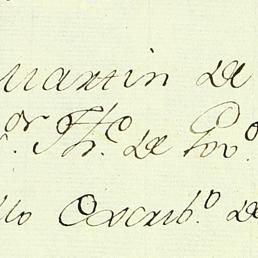 Martin de
or Th.º de Gov.º
llo Escrib.º de